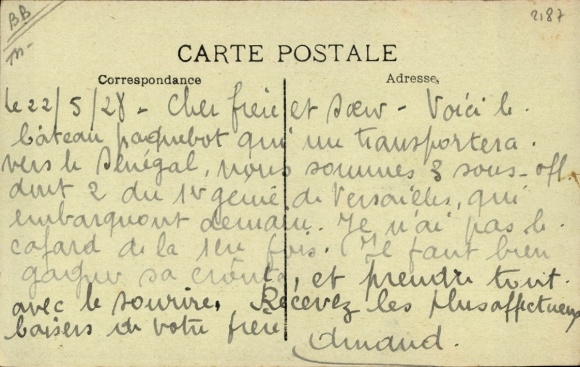 BB
m-
2187
CARTE POSTALE
Correspondance
Adresse,
le 22/5/28 - Cher frère et sœur - Voici le
bâteau paquebot qui me transportera
vers le Sénégal, nous sommes 3 sous-off
dont 2 du 1er génie de Versailles, qui
embarquont demain. Je n'ai pas le
cafard de la 1ère fois. Il faut bien
gagner sa croûte, et prendre tout
avec le sourire. Recevez les plus affectueux
baisers de votre frère
Armand.